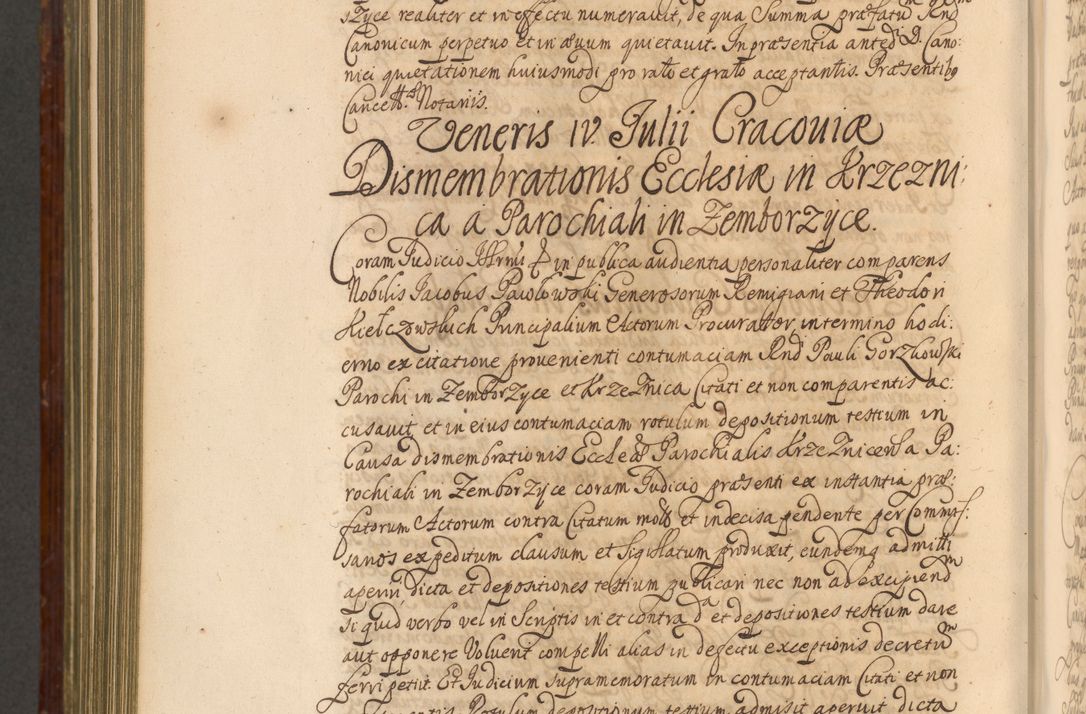 szyce realiter et in effectu numerauit, de qua Summa præfatū Rnd
Canonicum perpetuo et in æuum quietauit. In præsentia anted D. Cano:
nici quietationem huiusmodi pro rato et grato acceptantis. Præsentibg
Cancell. Notariis.
Veneris IV Julii Cracouiæ
Dismembrationis Ecclesiæ in Krzezni:
ca a Parochiali in Zemborzyce.
Coram Judicio in publica audientia personaliter comparens
Nobilis Jacobus Pawłowski Generosorum Remigiani et Theodori
Kiełczowskich Principalium Actorum Procurator, in termino hodi:
erno ex citatione provenienti contumaciam Rnd Pauli Gorzkowski
Parochi in Zemborzyce et Krzeznica Citati et non comparentis ac:
cusauit et in eius contumaciam rotulum depositionum testium in
Causa dismembrationis Eccleæ Parochialis Krzeznicensis a Pa:
rochiali in Zemborzyce coram Judicio præsenti ex instantia præ:
fatorum Actorum contra Citatum mota et indecisa pendente per Commis:
sarios expeditum clausum et Sigillatum produxit, eundemq admitti
aperiri, dicta et depositiones testium publicari nec non ad excipiend
si quid verbo vel in Scriptis in et contra da et depositiones testium dare
aut opponere Voluerit compelli alias in defectu exceptionis decretū
ferri petiit. Et Judicium supramemoratum in contumaciam Citati et non
Rotulum depositionum testium admisit aperuit dicta